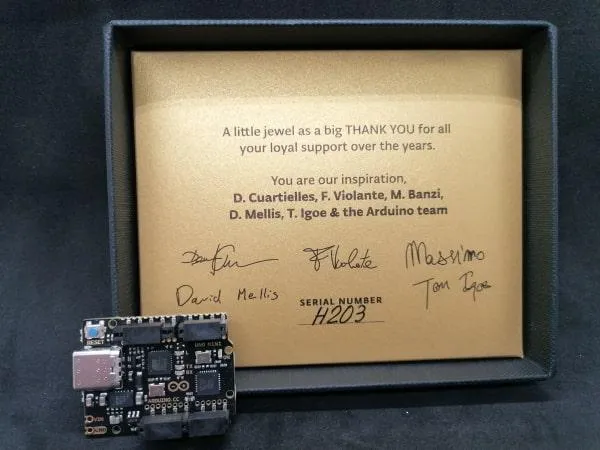 A little jewel as a big THANK YOU for all
your loyal support over the years.
You are our inspiration,
D. Cuartielles, F. Violante, M. Banzi,
D. Mellis, T. Igoe & the Arduino team
F Violante
Massimo
David Mellis
Tom Igoe
SERIAL NUMBER
H203
RESET
UNO MINI
TX
RX
ARDUINO.CC
VIN
GND